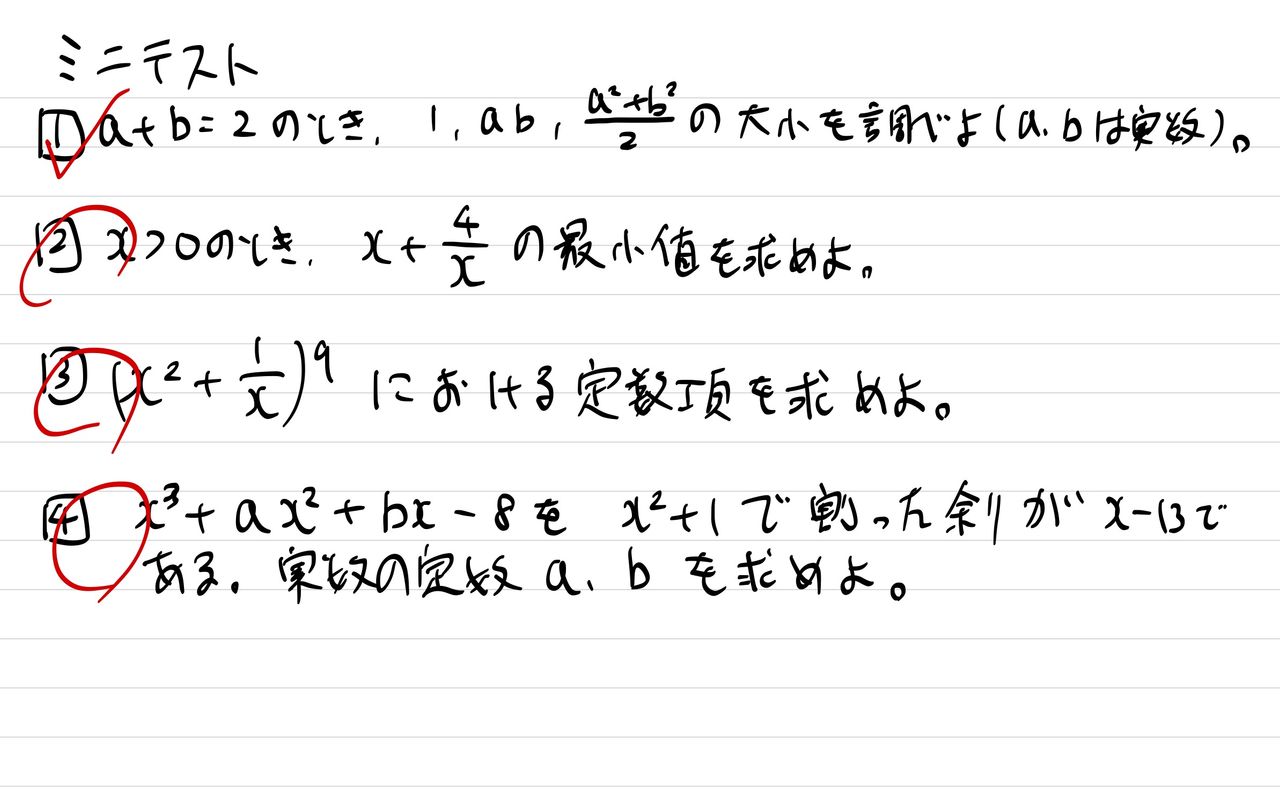 ミニテスト
1 a+b=2のとき, 1, ab, (a²+b²)/2 の大小を調べよ(a, bは実数)。
2 x>0のとき, x+4/x の最小値を求めよ。
3 (x²+1/x)⁹ における定数項を求めよ。
4 x³+ax²+bx-8を x²+1で割った余りがx-13で
ある. 実数の定数 a, b を求めよ。